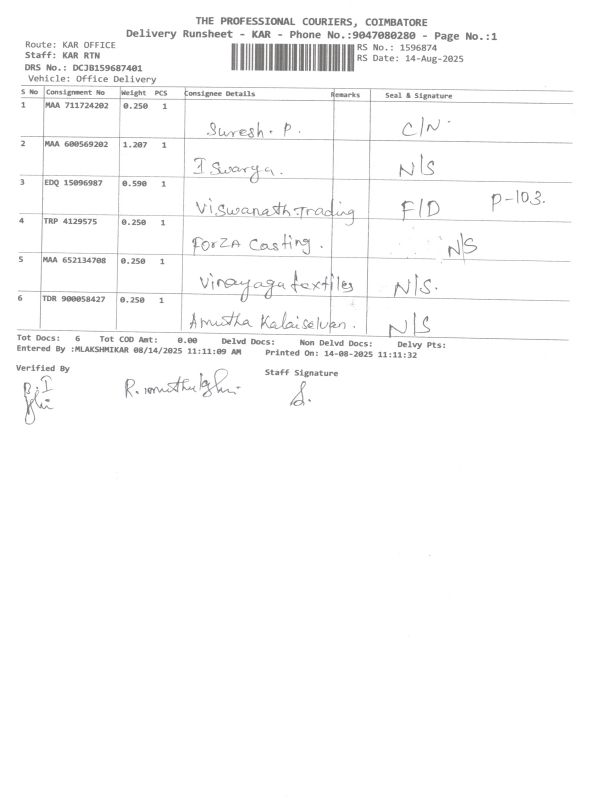 THE PROFESSIONAL COURIERS, COIMBATORE
Delivery Runsheet - KAR - Phone No.:9047080280 - Page No.:1
Route: KAR OFFICE RS No.: 1596874
Staff: KAR RTN RS Date: 14-Aug-2025
DRS No.: DCJB159687401
Vehicle: Office Delivery
S No Consignment No Weight PCS Consignee Details Remarks Seal & Signature
1 MAA 711724202 0.250 1 Suresh. P. C/N
2 MAA 600569202 1.207 1 I Swarya. N/S
3 EDQ 15096987 0.590 1 Viswanath Trading F/D P-103.
4 TRP 4129575 0.250 1 Forza Casting. N/S
5 MAA 652134708 0.250 1 Vinayaga textiles N/S.
6 TDR 900058427 0.250 1 Amutha Kalaiselvan. N/S
Tot Docs: 6 Tot COD Amt: 0.00 Delvd Docs: Non Delvd Docs: Delvy Pts:
Entered By :MLAKSHMIKAR 08/14/2025 11:11:09 AM Printed On: 14-08-2025 11:11:32
Verified By Staff Signature